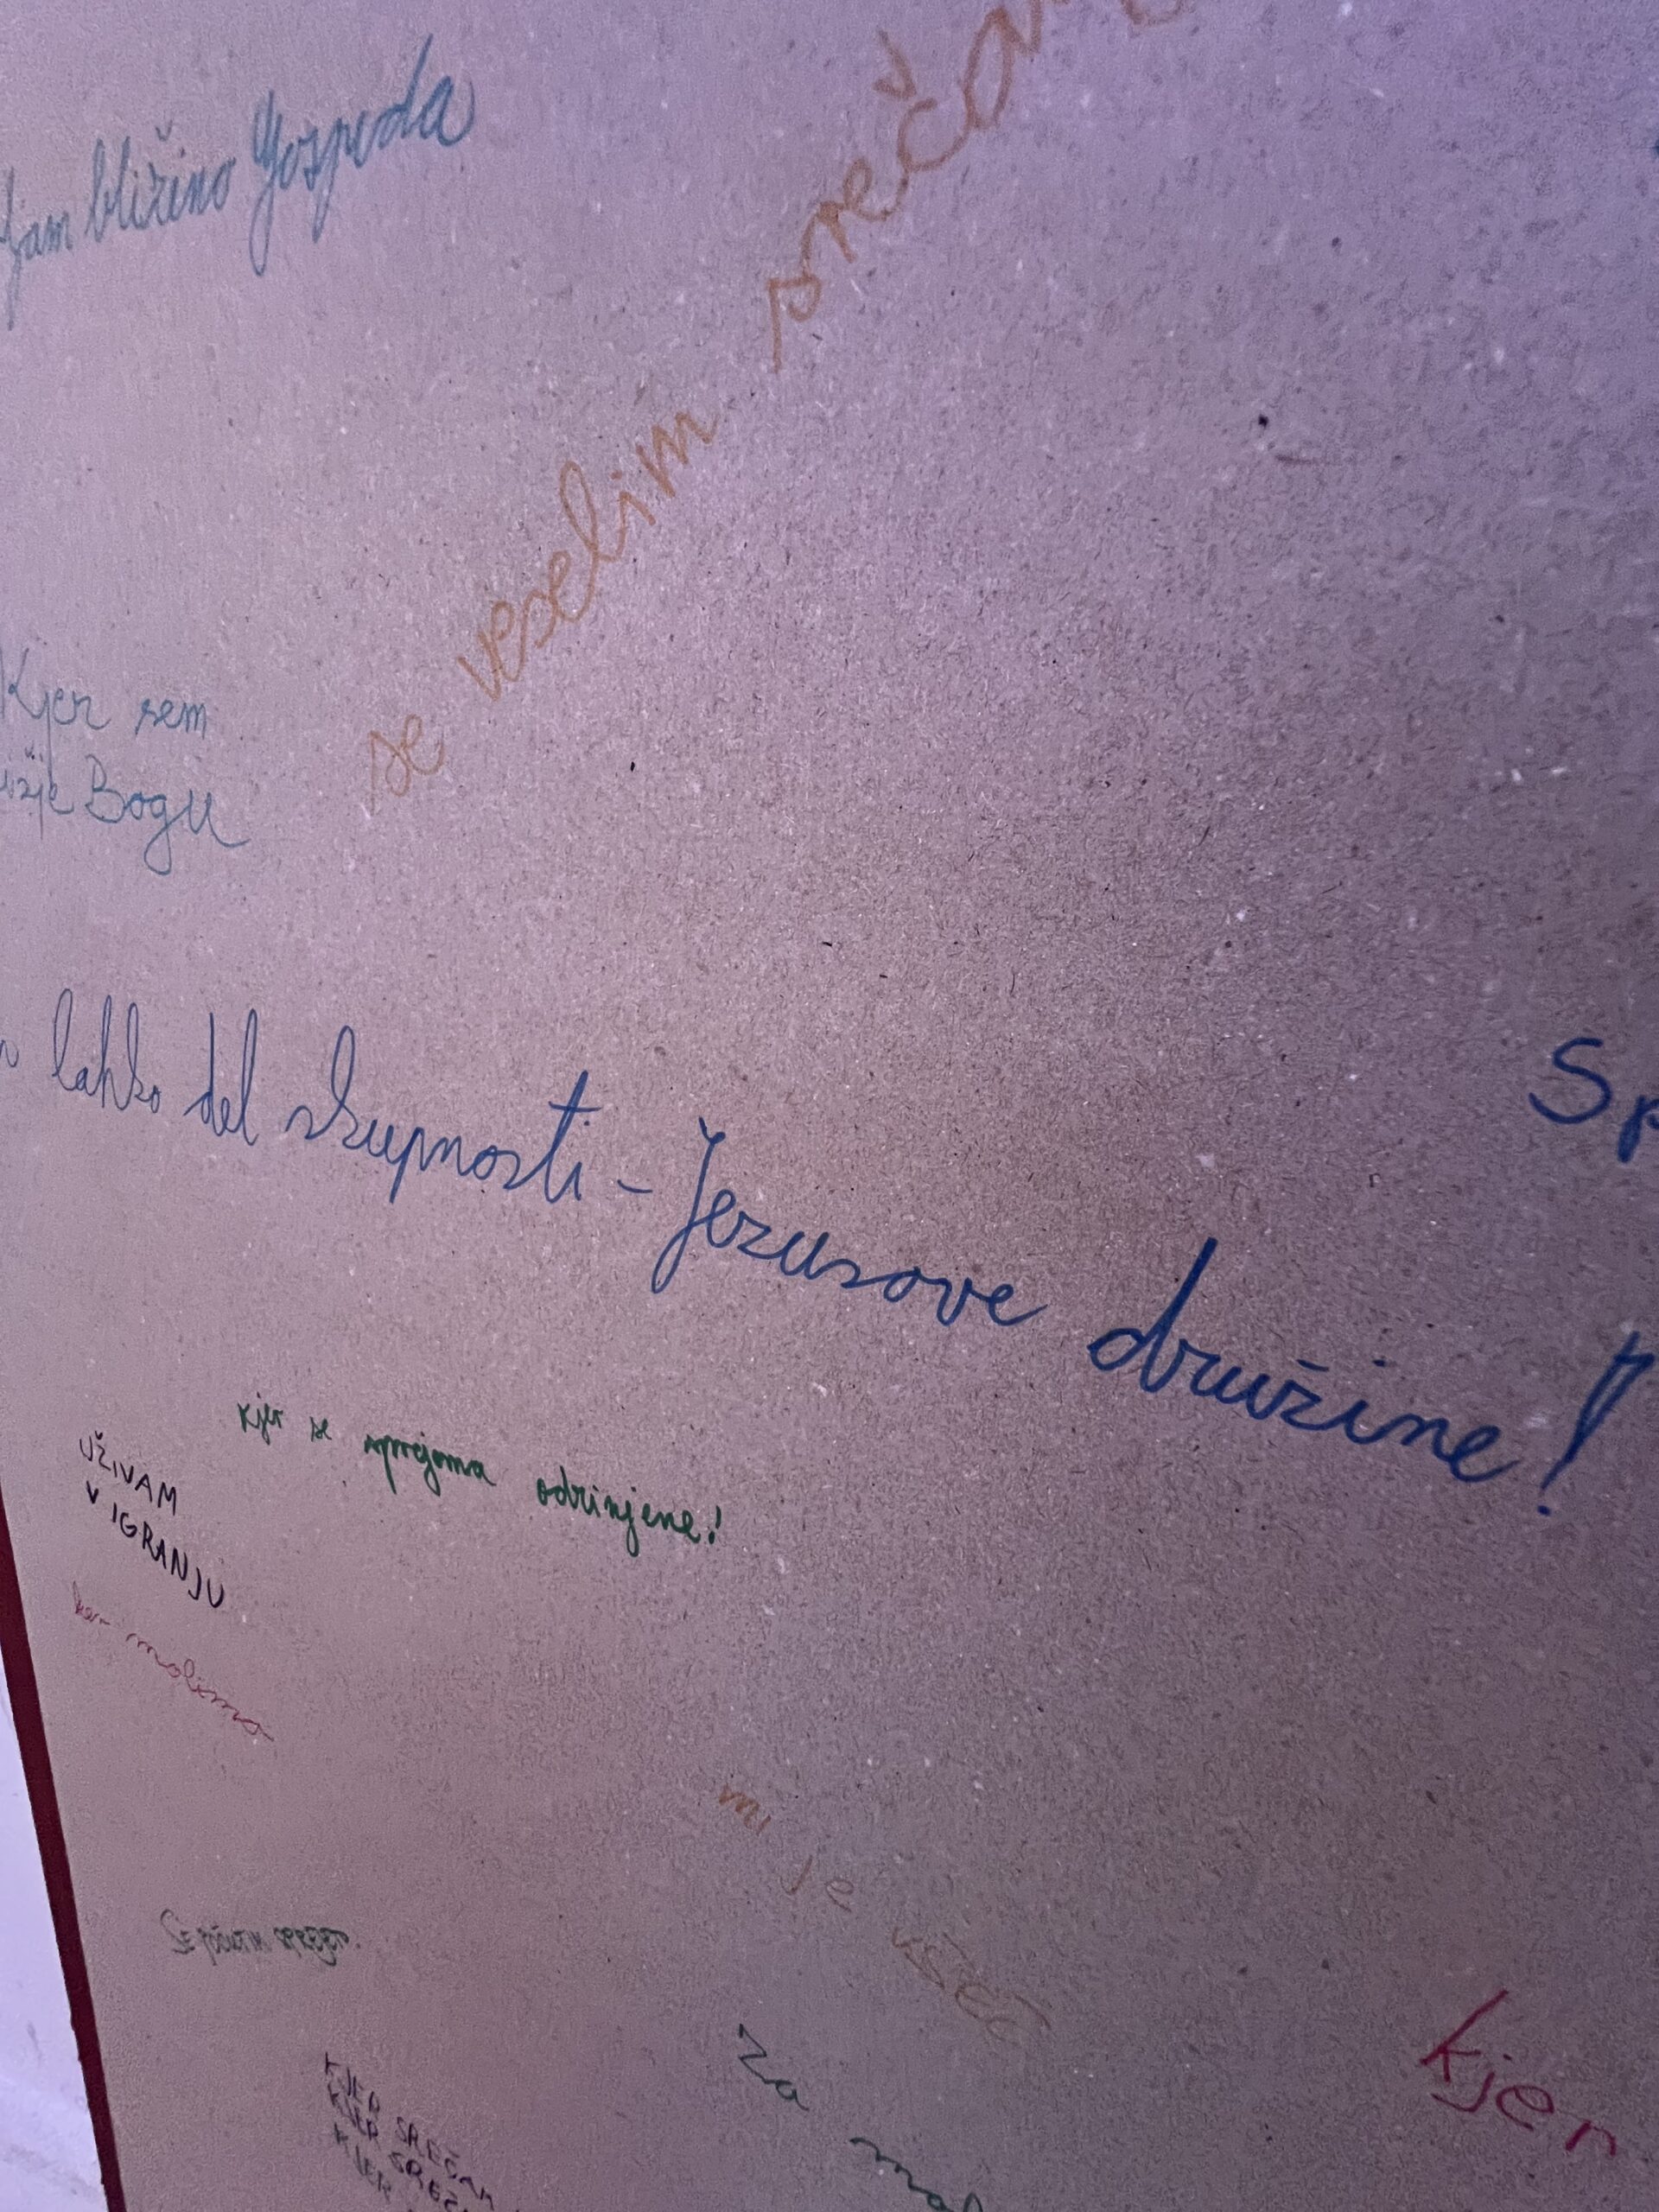 bližino Gospoda
se veselim
Kjer sem
Bogu
lahko del skupnosti - Jezusove družine!
kjer se sprejema odrinjene!
UŽIVAM
V IGRANJU
ker molimo
mi je všeč
Se počutim sprejeto.
za
kjer
KJER SREČAM
KJER
KJER